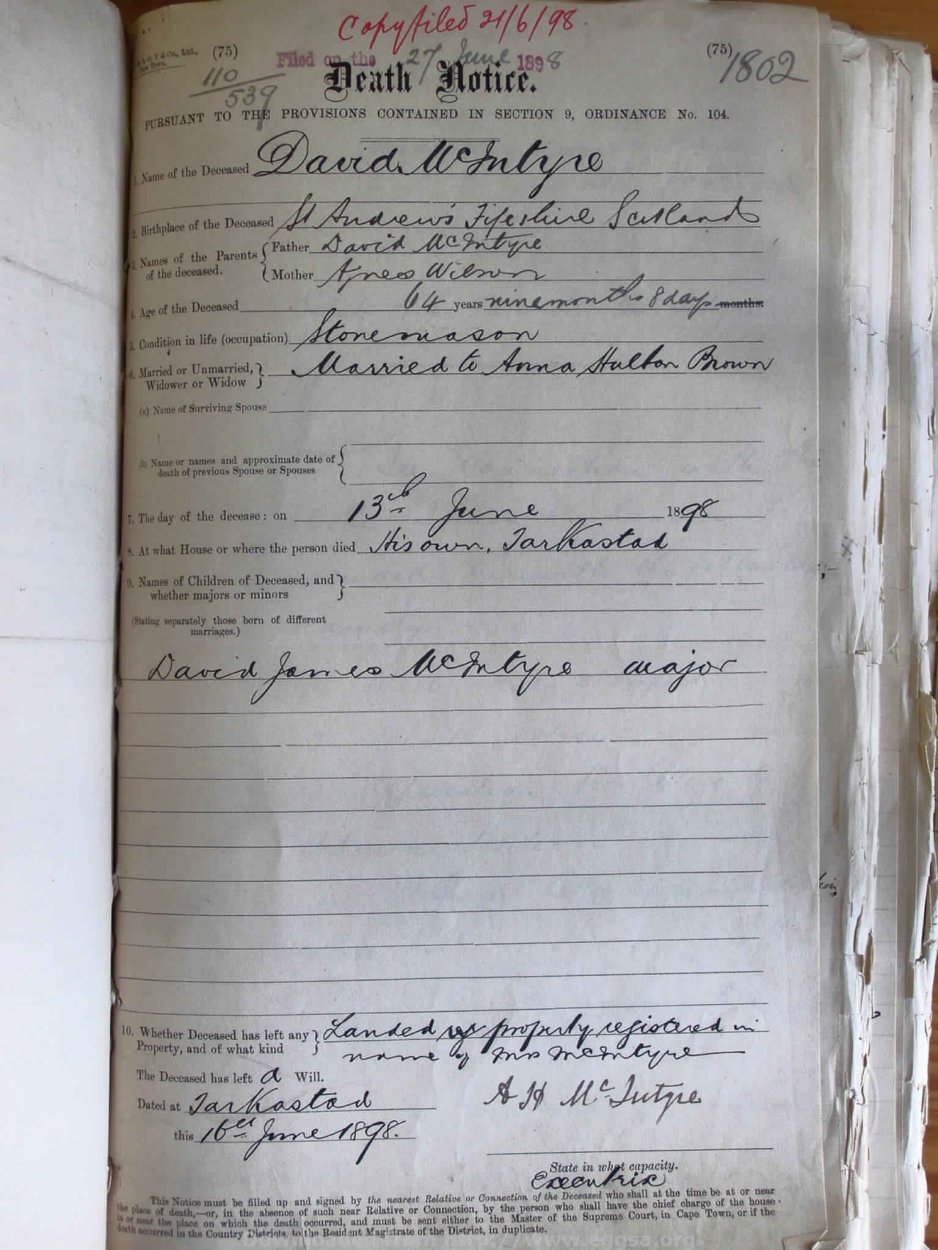 Copy filed 21/6/98.
& Co., Ltd.,
(75)
(75)
1802
Filed on the 27 June 1898
110
539
Death Notice.
PURSUANT TO THE PROVISIONS CONTAINED IN SECTION 9, ORDINANCE No. 104.
1. Name of the Deceased David McIntyre
2. Birthplace of the Deceased St Andrew's Fifeshire Scotland
3. Names of the Parents of the deceased. { Father David McIntyre
Mother Agnes Wilson
4. Age of the Deceased 64 years nine months 8 days months.
5. Condition in life (occupation) Stonemason
6. Married or Unmarried, Widower or Widow } Married to Anna Hutton Brown
(a) Name of Surviving Spouse
(b) Name or names and approximate date of
death of previous Spouse or Spouses {
7. The day of the decease: on 13th June 1898
8. At what House or where the person died His own, Tarkastad
9. Names of Children of Deceased, and
whether majors or minors }
(Stating separately those born of different
marriages.)
David James McIntyre major
10. Whether Deceased has left any } Landed property registered in
Property, and of what kind name of Mrs McIntyre
The Deceased has left a Will.
Dated at Tarkastad
A H McIntyre
this 16th June 1898.
State in what capacity.
Executrix
This Notice must be filled up and signed by the nearest Relative or Connection of the Deceased who shall at the time be at or near
the place of death,—or, in the absence of such near Relative or Connection, by the person who shall have the chief charge of the house
in or near the place on which the death occurred, and must be sent either to the Master of the Supreme Court, in Cape Town, or if the
death occurred in the Country Districts, to the Resident Magistrate of the District, in duplicate.
www.eggsa.org